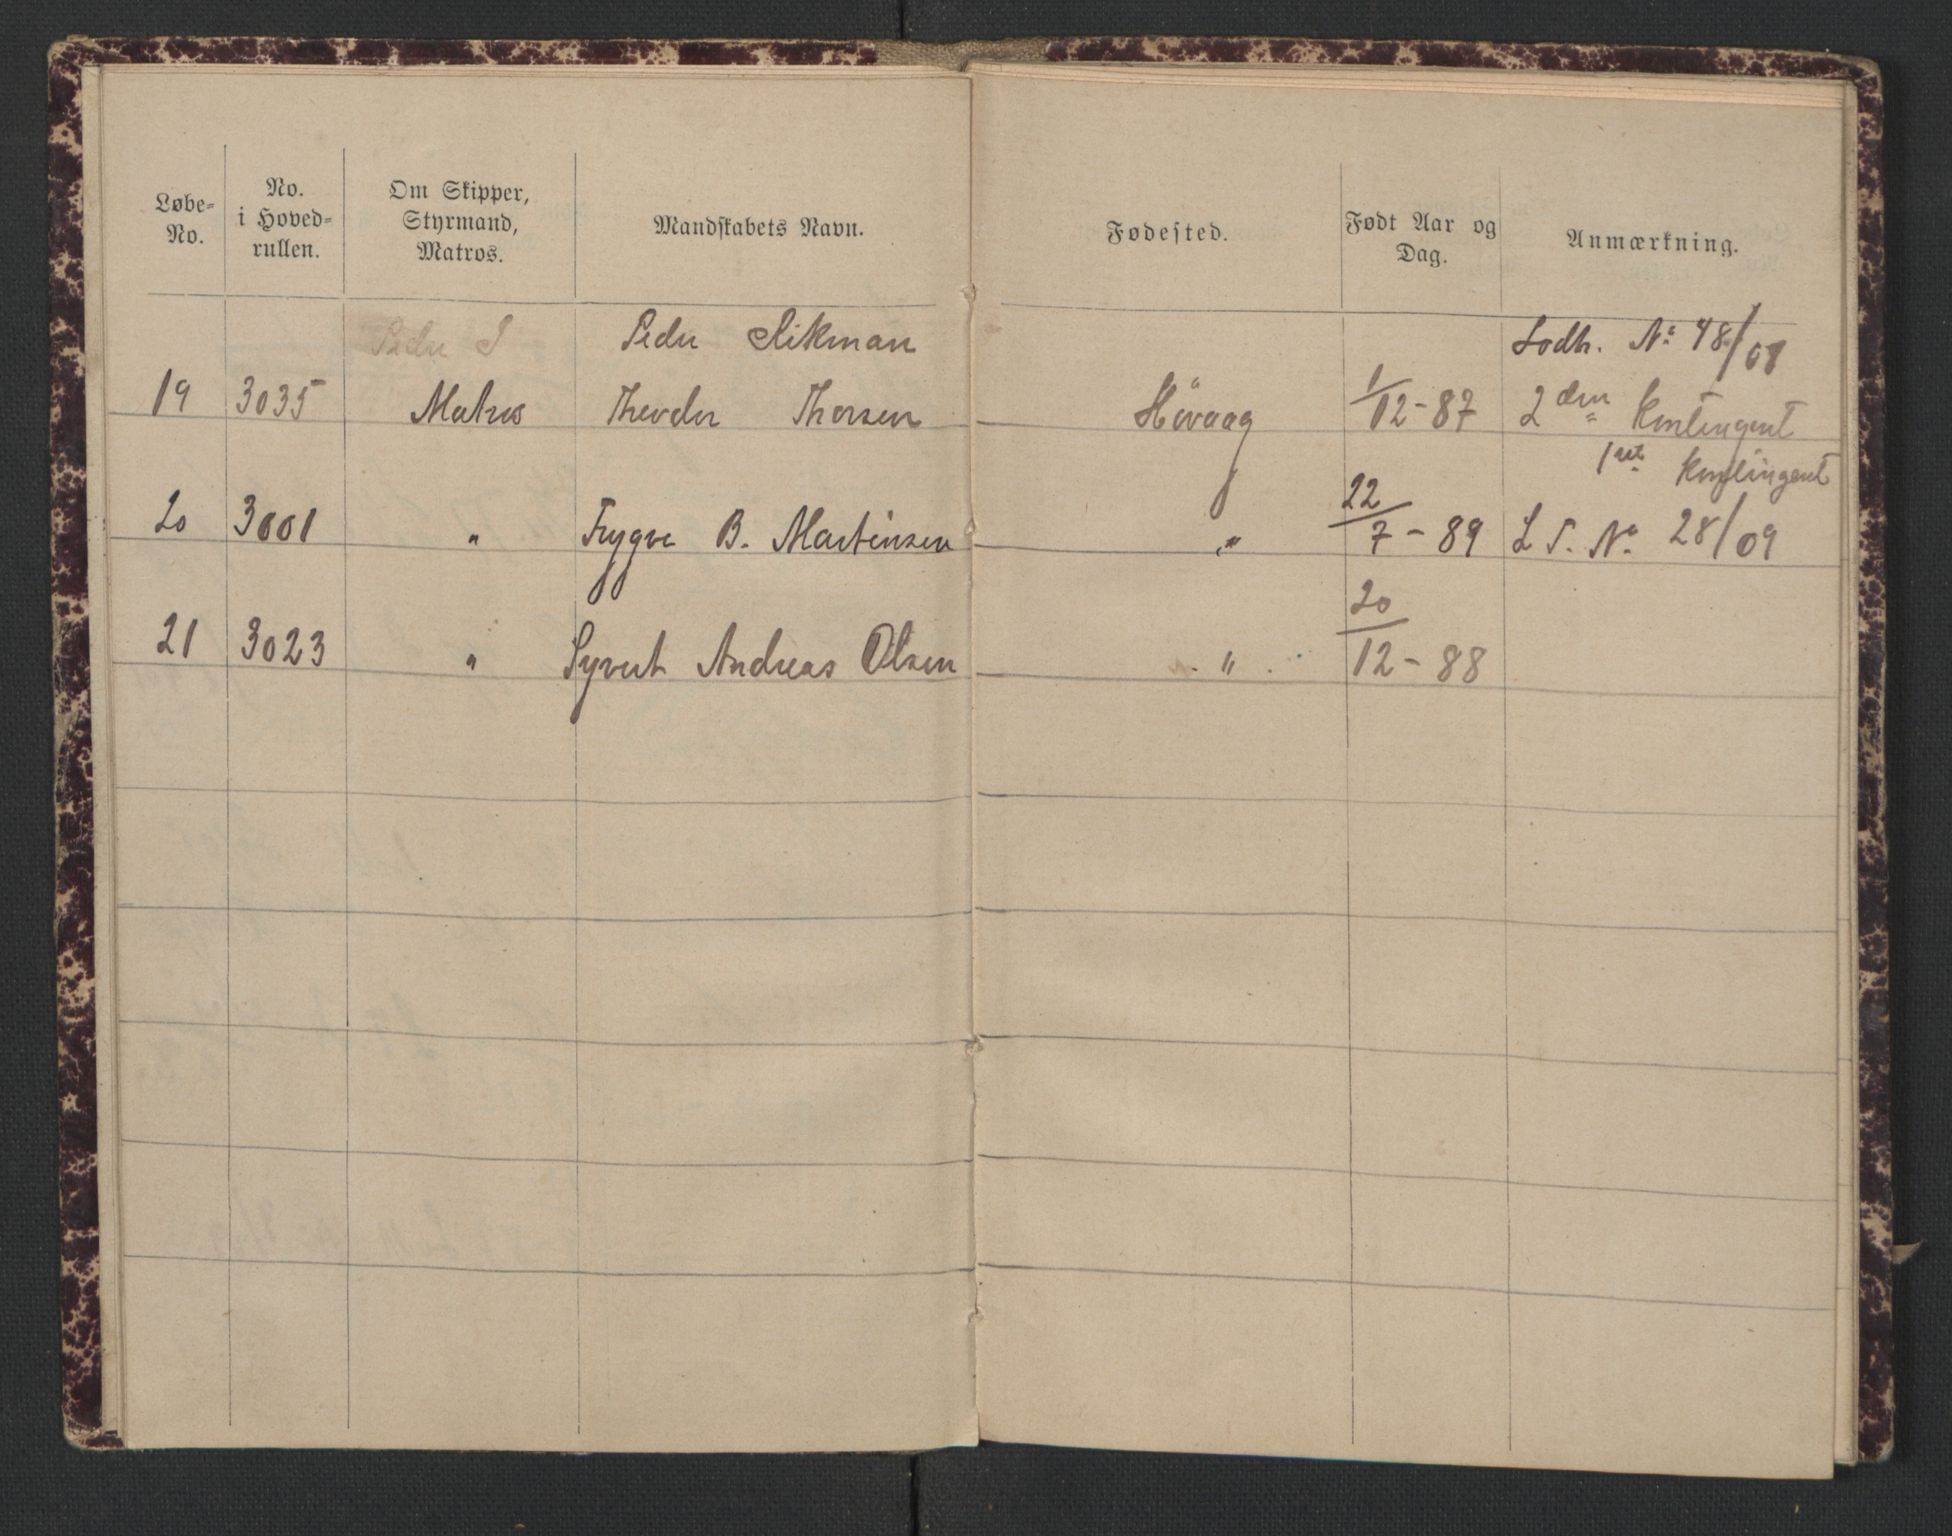 Løbe-
No.
No.
i Hoved-
rullen.
Om Skipper,
Styrmand,
Matros.
Mandskabets Navn.
Fødested.
Født Aar og
Dag.
Anmærkning.
Peder S Peder Rikman Sodh. No 48/08
19 3035 Matros Theodor Thorsen Hövaag 1/12-87 2den Kontingent
1ste Kontingent
20 3001 " Trygve B. Martinsen " 22/7-89 L S. No 28/09
21 3023 " Syvert Andreas Olsen " 20/12-88